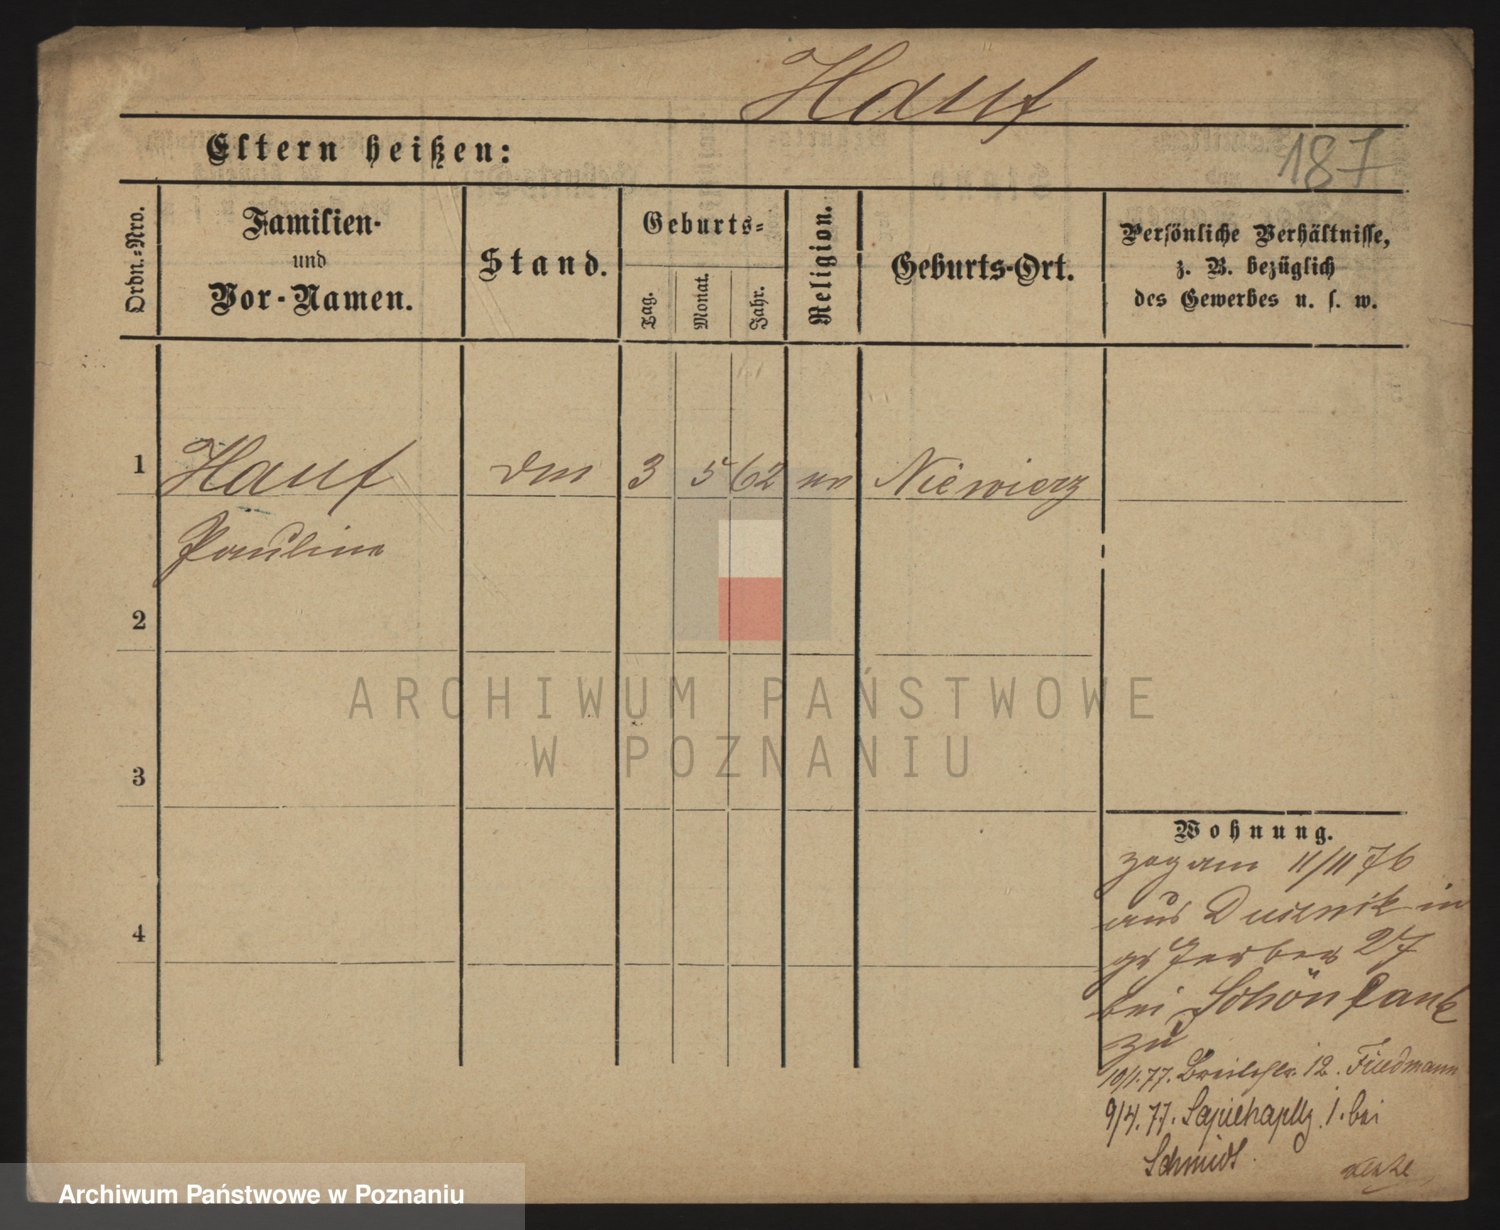 Hauf
187
Eltern heißen:
Ordn.-Nro.
Familien-
und
Vor-Namen.
Stand.
Geburts-
Tag.
Monat.
Jahr.
Religion.
Geburts-Ort.
Persönliche Verhältnisse,
z. B. bezüglich
des Gewerbes u. s. w.
1
Hauf
3 5 62
Niewierz
Pauline
2
ARCHIWUM PAŃSTWOWE
W POZNANIU
3
Wohnung.
zog am 11/11 76
aus Dusnik in
gr Gerber 27
bei Schönlank
zu
4
10/1.77. Breitestr. 12. Friedmann
9/4.77. Sapiehapltz. 1. bei
Schmidt.
Archiwum Państwowe w Poznaniu